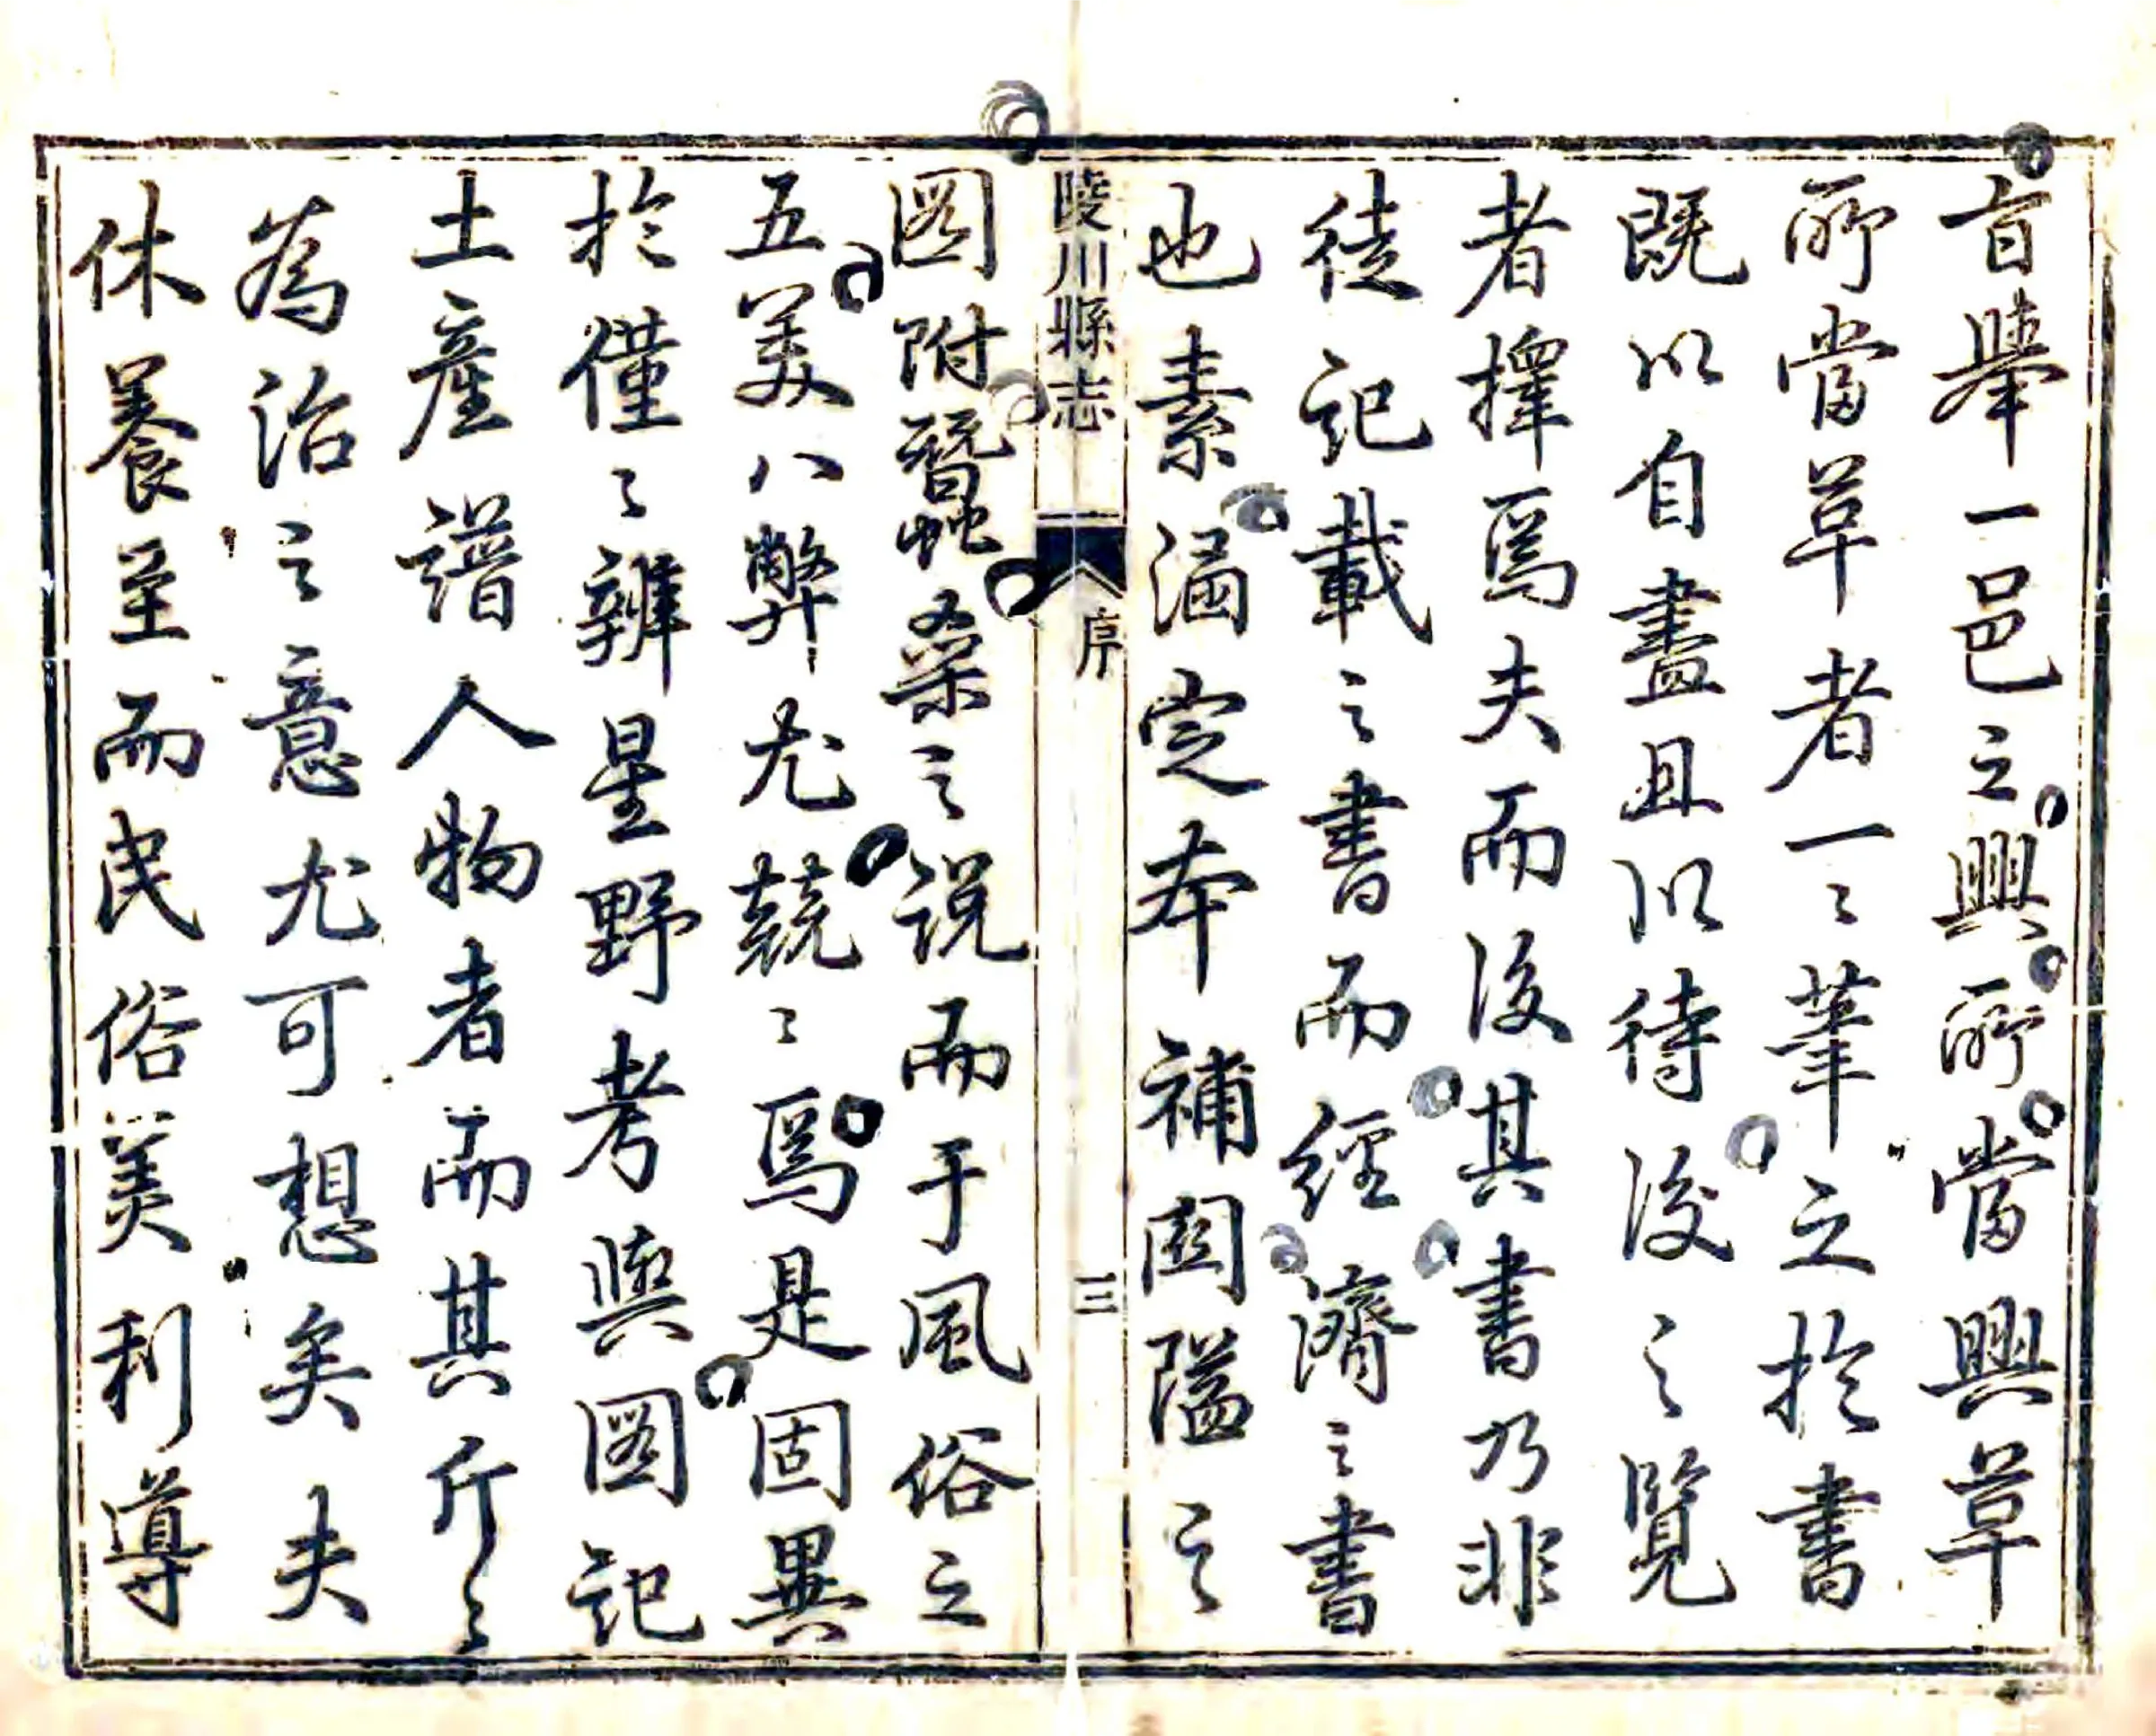 首舉一邑之興所當興革
所當革者一〻筆之於書
既以自盡且以待後之覽
者擇焉夫而後其書乃非
徒記載之書而經濟之書
也素涵定本補關隘之
陵川縣志 序 三
圖附蠶桑之說而于風俗之
五美八弊尤兢〻焉是固異
於僅〻辨星野考輿圖記
土產譜人物者而其斤〻
為治之意尤可想矣夫
休養至而民俗美利導